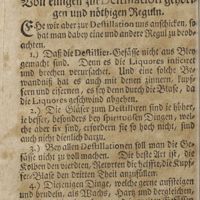 Von einigen zur Destillation gehöri-
gen und nöthigen Reguln.
EHe wir aber zur Destillation uns anschicken, so
hat man dabey eine und andere Regul zu beob-
achten.
1.) Daß die Destillier-Gefässe nicht aus Bley
gemacht sind. Denn es die Liquores inficiret
und brechen verursachet. Und eine solche Be-
wandniß hat es auch mit denen zinnern, kupf-
fern und eisernen, es sey denn durch die Blase, da
die Liquores geschwind abgehen.
2.) Die Gläser zum Destilliren sind je höher,
je besser, besonders bey spirituösen Dingen, wel-
che aber fix sind, erfordern sie so hoch nicht, sind
auch nicht dienlich darzu.
3.) Bey allen Destillationen soll man die Ge-
fässe nicht zu voll machen. Die beste Art ist, die
Kolben den vierdten, Retorten die helffte, die Kupf-
fer-Blase den dritten Theil anzufüllen.
4.) Diejenigen Dinge, welche gerne aufsteigen
und brudeln, als Wachs, Hartz und dergleichen,